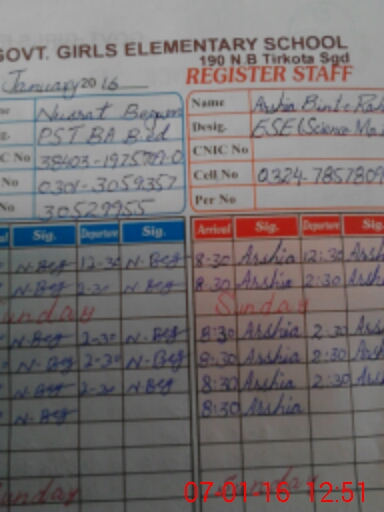 GOVT. GIRLS ELEMENTARY SCHOOL
190 N.B Tirkota Sgd
January 2016 REGISTER STAFF
Nusrat Begum Name Arshia Bint-e
PST BA B.ed Desig. ESE (Science
C No 38403-1975719-0 CNIC No
No 0301-3059357 Cell No 0324-7857809
No 30529955 Per No
Sig. Departure Sig. Arrival Sig. Departure Sig.
N-Beg 12-30 N-Beg 8-30 Arshia 12:30 Arsh
N-Beg 2-30 N-Beg 8.30 Arshia 2:30 Arsh
unday Sunday
N-Beg 2-30 N-Beg 8:30 Arshia 2:30 Arsh
N-Beg 2-30 N-Beg 8:30 Arshia 2:30 Arsh
N-Beg 2-30 N-Beg 8:30 Arshia 2:30 Arsh
N-Beg 8:30 Arshia
unday Sunday
07-01-16 12:51